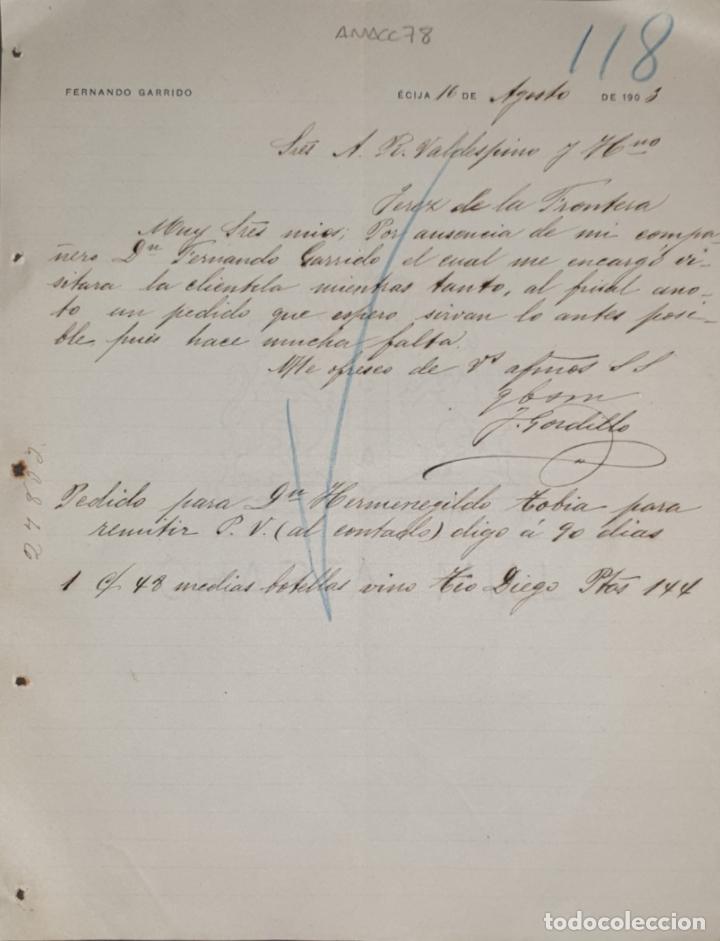 AMACC78
118
FERNANDO GARRIDO ÉCIJA 16 DE Agosto DE 1903
Sres A. R. Valdespino y Hno
Jerez de la Frontera
Muy Sres mios; Por ausencia de mi compa
ñero Dn Fernando Garrido el cual me encargó vi-
sitara la clientela mientras tanto, al final ano-
to un pedido que espero sirvan lo antes posi-
ble pues hace mucha falta.
Me ofresco de Vs afmos S S
q b s m
J. Gordillo
Pedido para Dn Hermenegildo Tobia para
remitir P. V. (al contado) digo á 90 dias
1 c/ 48 medias botellas vino Tio Diego Ptas 144
todocoleccion